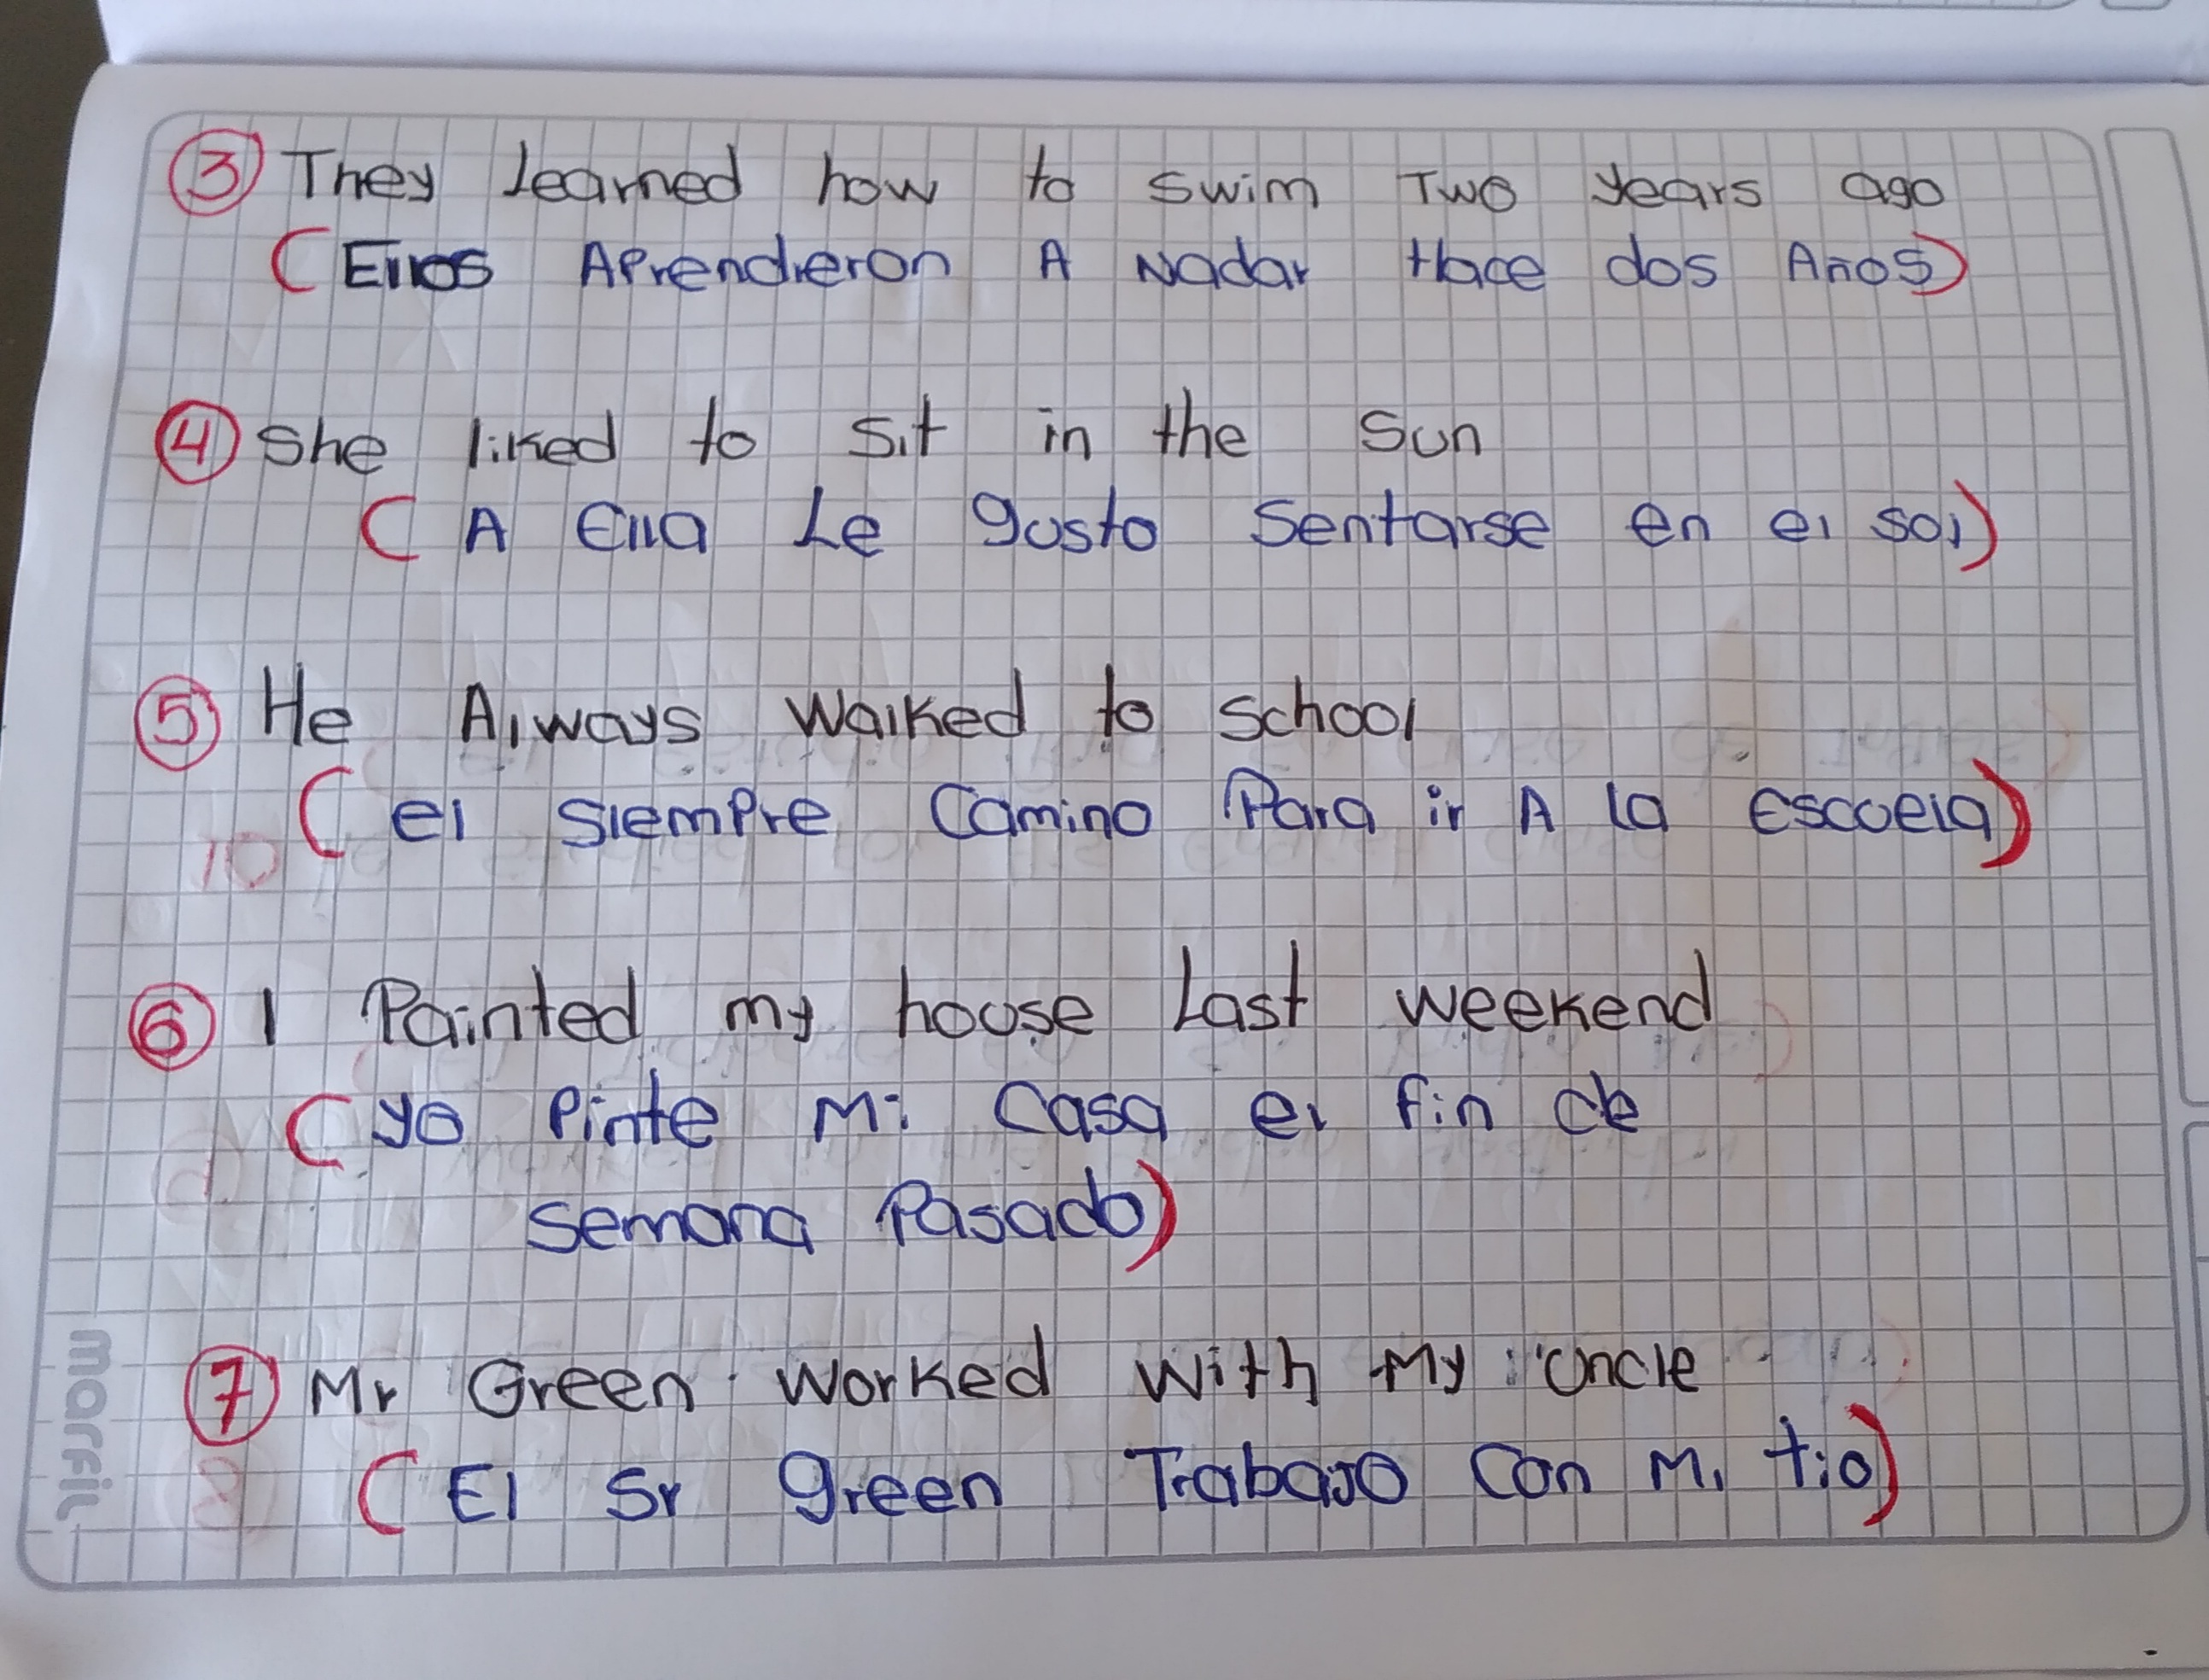 3 They Learned how to swim Two years ago
(Ellos Aprendieron A Nadar Hace dos Años)
4 she liked to sit in the sun
(A Ella Le gusto Sentarse en el sol)
5 He Always walked to school
(el siempre Camino Para ir A la Escuela)
6 I Painted my house Last weekend
(yo Pinte Mi Casa el fin de
semana Pasado)
7 Mr Green worked with My Uncle
(El Sr green Trabajo Con Mi tio)
marfil